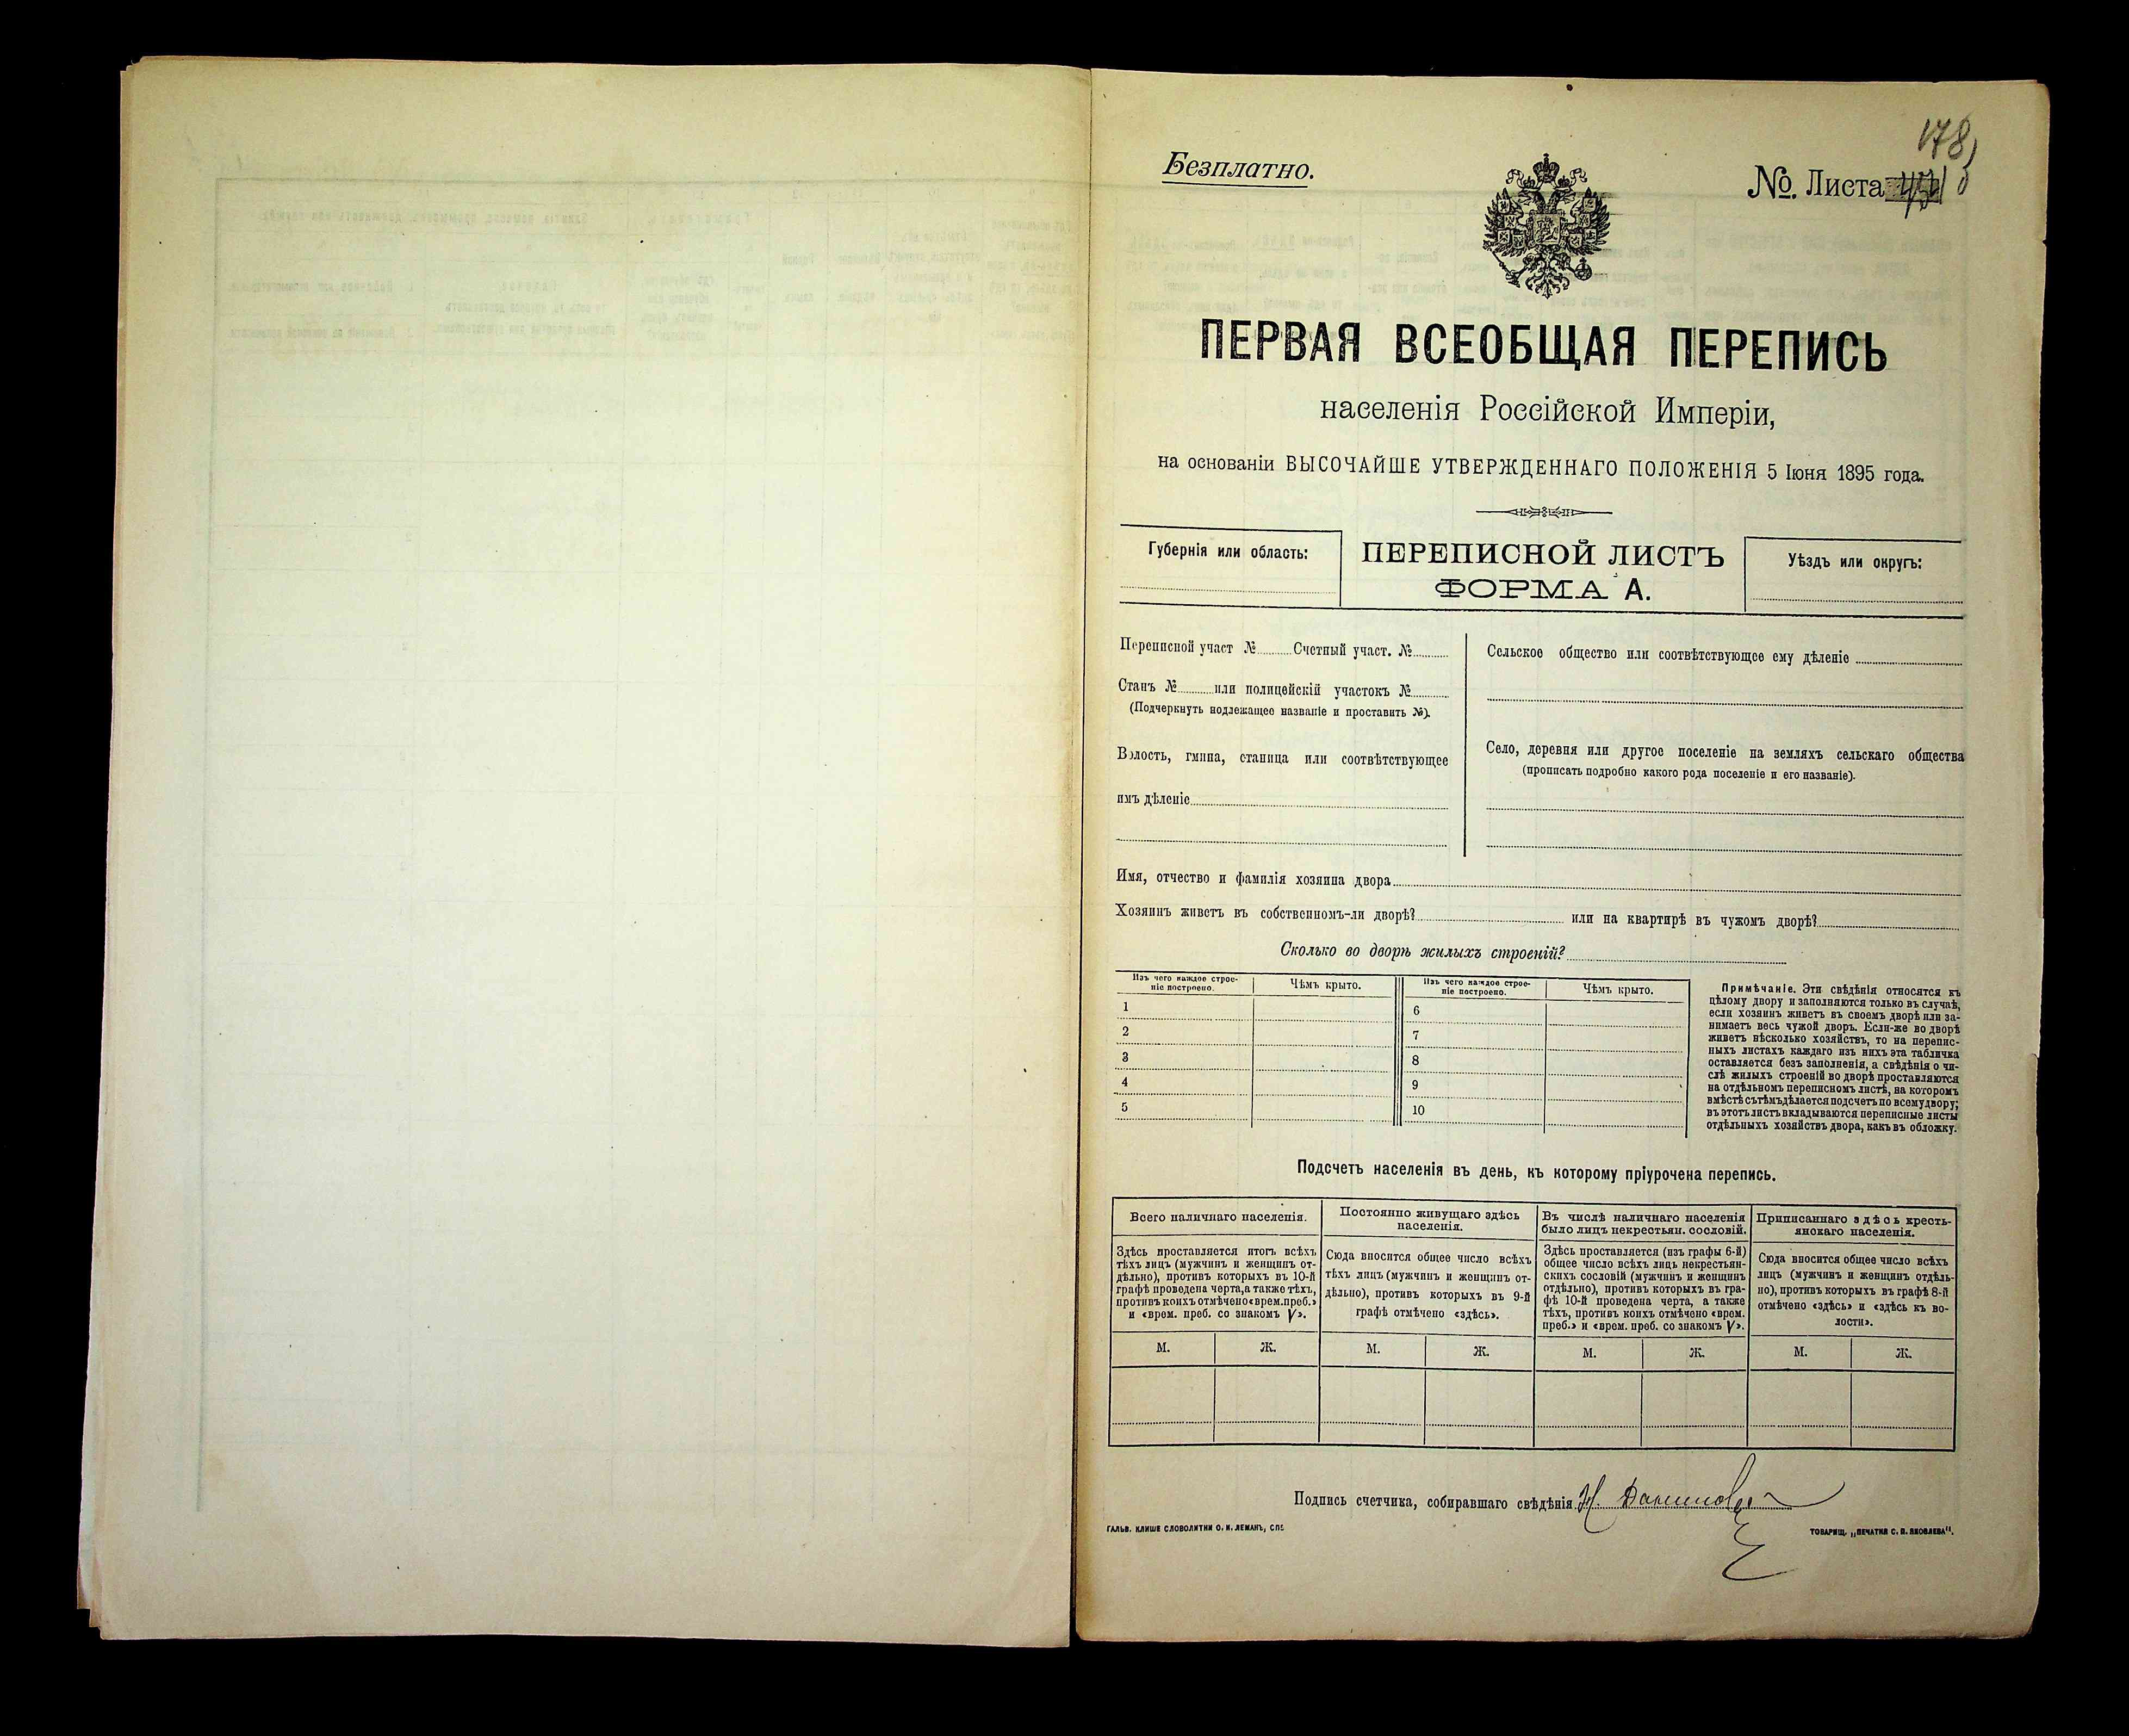 178
Безплатно.
№. Листа
ПЕРВАЯ ВСЕОБЩАЯ ПЕРЕПИСЬ
населенія Россійской Имперіи,
на основаніи ВЫСОЧАЙШЕ УТВЕРЖДЕННАГО ПОЛОЖЕНІЯ 5 Іюня 1895 года.
Губернія или область:
ПЕРЕПИСНОЙ ЛИСТЪ
ФОРМА А.
Уѣздъ или округъ:
Переписной участ № Счетный участ. №
Станъ № или полицейскій участокъ №
(Подчеркнуть подлежащее названіе и проставить №).
Волость, гмина, станица или соотвѣтствующее
имъ дѣленіе
Сельское общество или соотвѣтствующее ему дѣленіе
Село, деревня или другое поселеніе на земляхъ сельскаго общества
(прописать подробно какого рода поселеніе и его названіе).
Имя, отчество и фамилія хозяина двора
Хозяинъ живетъ въ собственномъ-ли дворѣ? или на квартирѣ въ чужомъ дворѣ?
Сколько во дворѣ жилыхъ строеній?
Изъ чего каждое строе-
ніе построено.
Чѣмъ крыто.
1
2
3
4
5
Изъ чего каждое строе-
ніе построено.
Чѣмъ крыто.
6
7
8
9
10
Примѣчаніе. Эти свѣдѣнія относятся къ
цѣлому двору и заполняются только въ случаѣ,
если хозяинъ живетъ въ своемъ дворѣ или за-
нимаетъ весь чужой дворъ. Если-же во дворѣ
живетъ нѣсколько хозяйствъ, то на перепис-
ныхъ листахъ каждаго изъ нихъ эта табличка
оставляется безъ заполненія, а свѣдѣнія о чи-
слѣ жилыхъ строеній во дворѣ проставляются
на отдѣльномъ переписномъ листѣ, на которомъ
вмѣстѣ съ тѣмъ дѣлается подсчетъ по всему двору;
въ этотъ листъ вкладываются переписные листы
отдѣльныхъ хозяйствъ двора, какъ въ обложку.
Подсчетъ населенія въ день, къ которому пріурочена перепись.
Всего наличнаго населенія.
Здѣсь проставляется итогъ всѣхъ
тѣхъ лицъ (мужчинъ и женщинъ от-
дѣльно), противъ которыхъ въ 10-й
графѣ проведена черта, а также тѣхъ,
противъ коихъ отмѣчено «врем. преб.»
и «врем. преб. со знакомъ V».
М. Ж.
Постоянно живущаго здѣсь
населенія.
Сюда вносится общее число всѣхъ
тѣхъ лицъ (мужчинъ и женщинъ от-
дѣльно), противъ которыхъ въ 9-й
графѣ отмѣчено «здѣсь».
М. Ж.
Въ числѣ наличнаго населенія
было лицъ некрестьян. сословій.
Здѣсь проставляется (изъ графы 6-й)
общее число всѣхъ лицъ некрестьян-
скихъ сословій (мужчинъ и женщинъ
отдѣльно), противъ которыхъ въ гра-
фѣ 10-й проведена черта, а также
тѣхъ, противъ коихъ отмѣчено «врем.
преб.» и «врем. преб. со знакомъ V».
М. Ж.
Приписаннаго здѣсь кресть-
янскаго населенія.
Сюда вносится общее число всѣхъ
лицъ (мужчинъ и женщинъ отдѣль-
но), противъ которыхъ въ графѣ 8-й
отмѣчено «здѣсь» и «здѣсь къ во-
лости».
М. Ж.
Подпись счетчика, собиравшаго свѣдѣнія
ГАЛЬВ. КЛИШЕ СЛОВОЛИТНИ О. И. ЛЕМАНЪ, СПБ
ТОВАРИЩ. „ПЕЧАТНЯ С. П. ЯКОВЛЕВА".